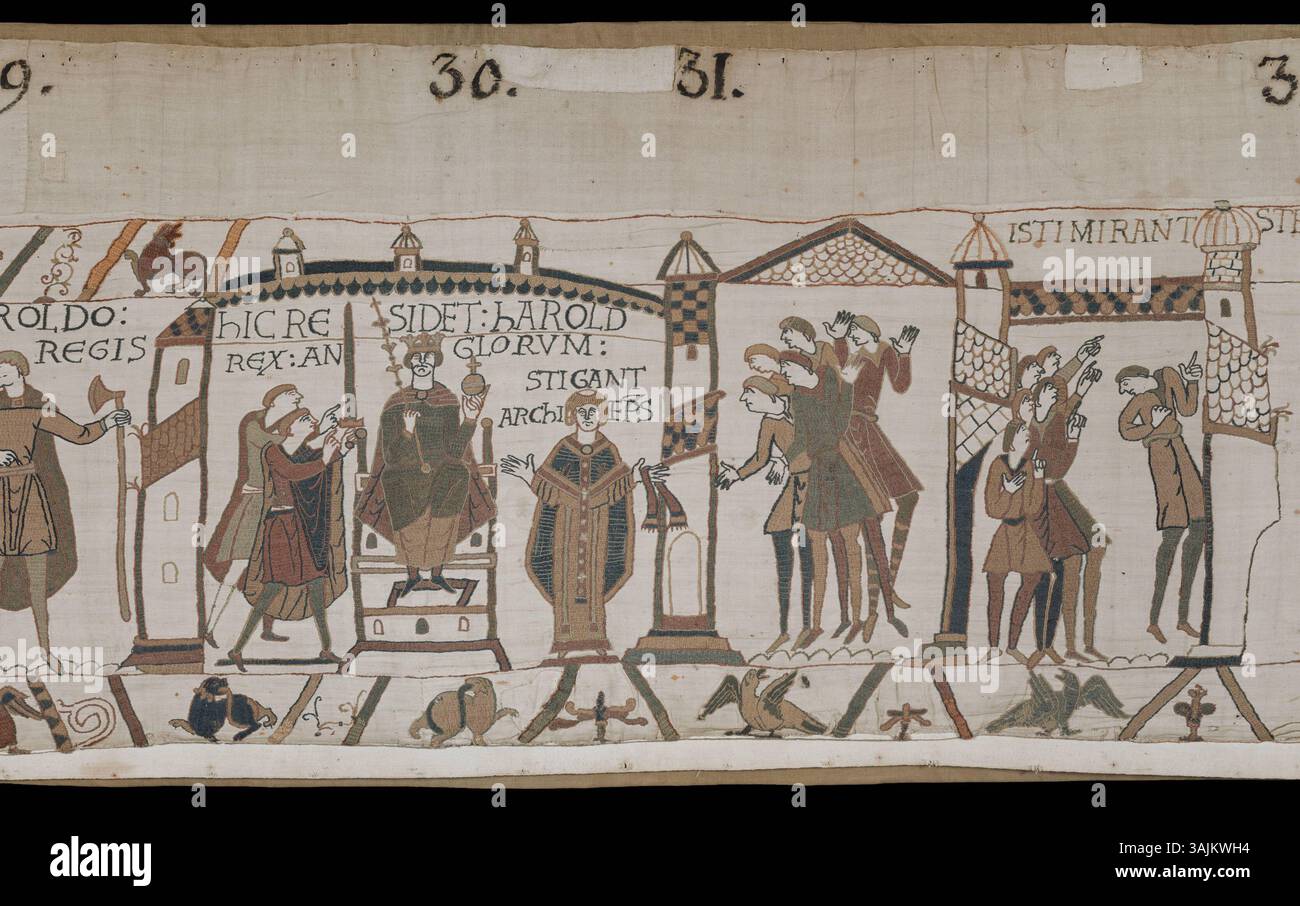 9.
30.
31.
3
ROLDO:
REGIS
hIC RE
SIDET: hAROLD
REX: AN
GLORVM:
STIGANT
ARChI EPS
ISTI MIRANT
STE
a
a
a
a
a
a
a
a
a
a
a
alamy
Image ID: 3AJKWH4
www.alamy.com